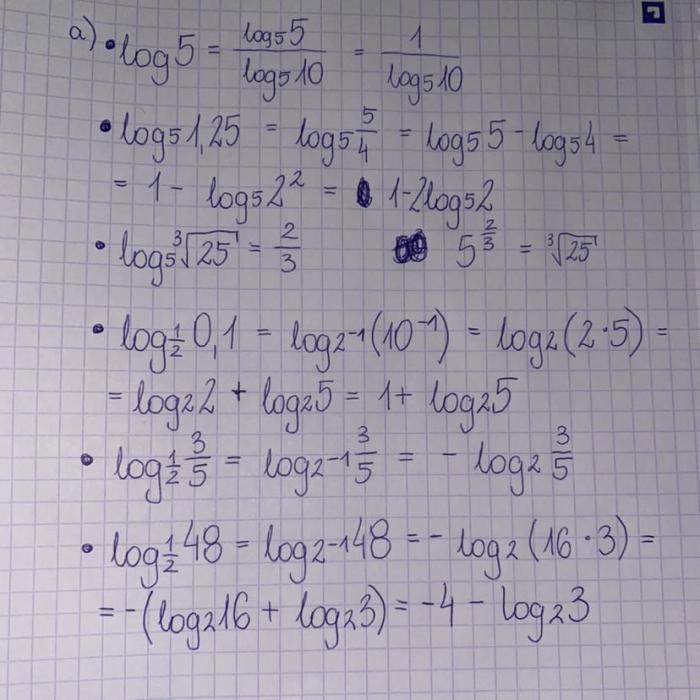 a) • log5 = log₅5/log₅10 = 1/log₅10
• log₅1,25 = log₅5/4 = log₅5 - log₅4 =
= 1 - log₅2² = 1-2log₅2
• log₅∛25 = 2/3 5^(2/3) = ∛25
• log_(1/2)0,1 = log_(2⁻¹)(10⁻¹) = log₂(2·5) =
= log₂2 + log₂5 = 1+ log₂5
• log_(1/2)3/5 = log_(2⁻¹)3/5 = - log₂3/5
• log_(1/2)48 = log_(2⁻¹)48 = - log₂(16·3) =
= -(log₂16 + log₂3) = -4 - log₂3